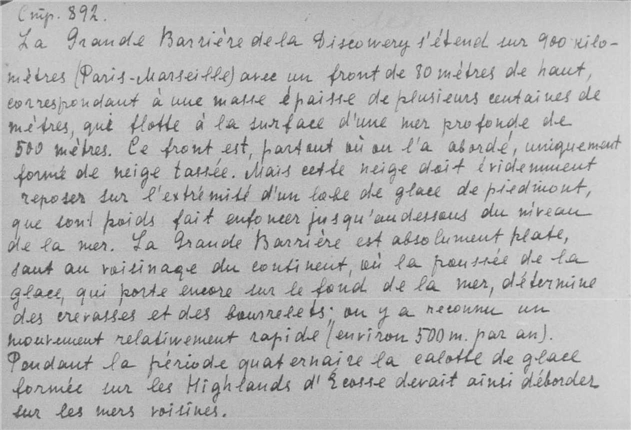 Стр. 892.
La Grande Barrière de la Discowery s'étend sur 900 kilo-
mètres (Paris-Marseille) avec un front de 80 mètres de haut,
correspondant à une masse épaisse de plusieurs centaines de
mètres, qui flotte à la surface d'une mer profonde de
500 mètres. Ce front est, partout où on l'a abordé, uniquement
formé de neige tassée. Mais cette neige doit évidemment
reposer sur l'extrémité d'un lobe de glace de piedmont,
que son poids fait enfoncer jusqu'au dessous du niveau
de la mer. La Grande Barrière est absolument plate,
sauf au voisinage du continent, où la poussée de la
glace, qui porte encore sur le fond de la mer, détermine
des crevasses et des bourrelets; on y a reconnu un
mouvement relativement rapide (environ 500 m. par an).
Pendant la période quaternaire la calotte de glace
formée sur les Highlands d'Écosse devait ainsi déborder
sur les mers voisines.